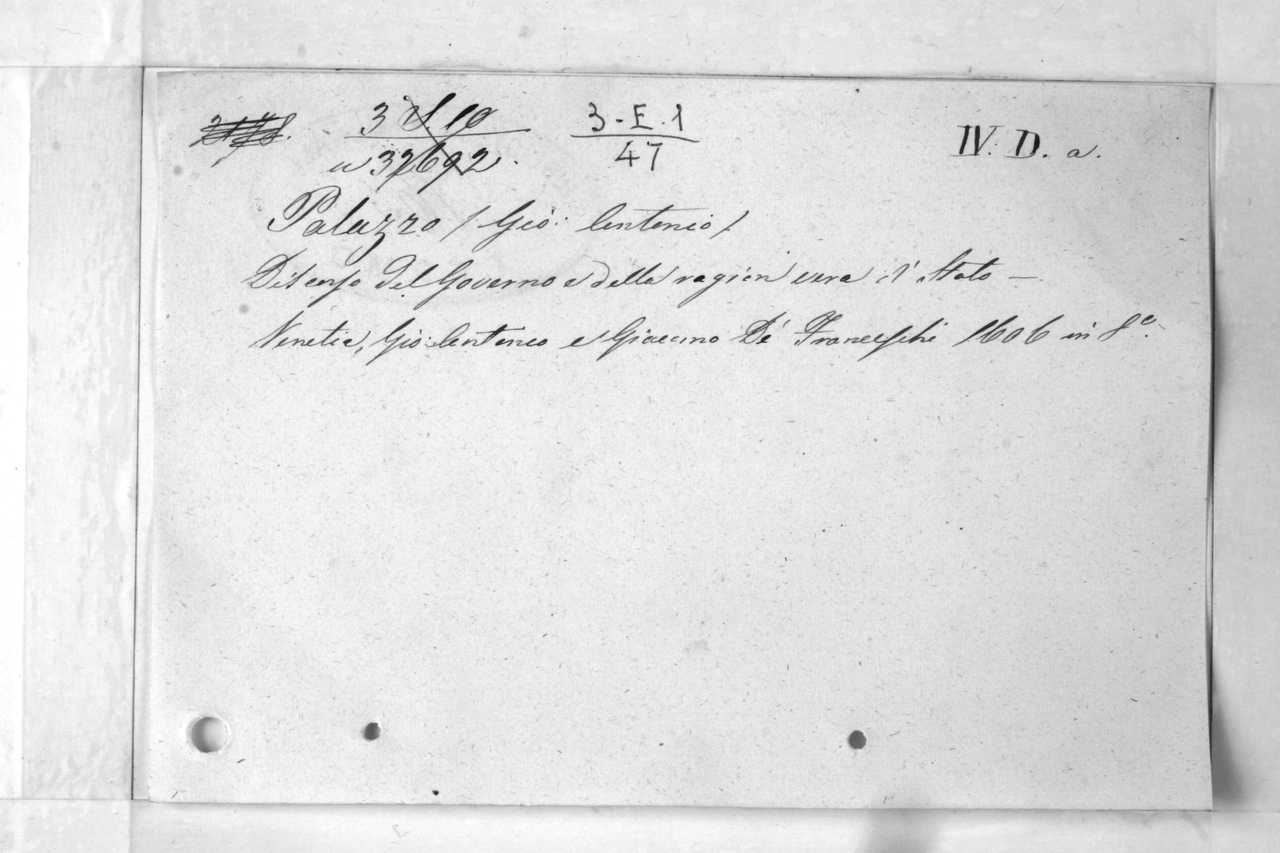 3-E.1
47
IV. D. a.
Palazzo / Gio: Antonio /
Discorso del Governo e della ragion vera di Stato —
Venetia, Gio: Antonio e Giacomo De' Franceschi 1606 in 8º.